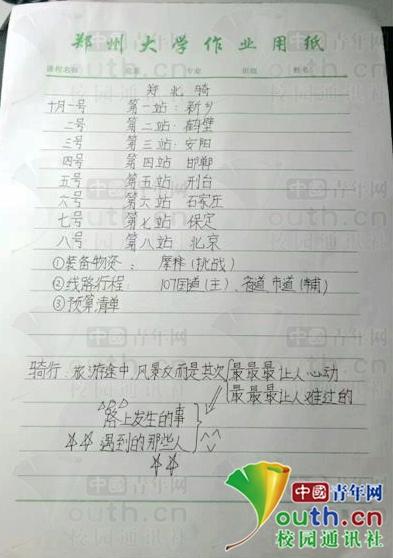 郑州大学作业用纸
课程名称 院系 专业 班级 姓名
郑北骑
十月一号 第一站:新乡
二号 第二站:鹤壁
三号 第三站:安阳
四号 第四站 邯郸
五号 第五站 邢台
六号 第六站 石家庄
七号 第七站 保定
八号 第八站 北京
①装备物资: 摩拜(挑战)
②线路行程: 107国道(主)、省道 市道(辅)
③预算清单
骑行:旅游途中,风景反而是其次
最最最让人心动
最最最让人难过的
路上发生的事
遇到的那些人
中國青年网
youth.cn
校园通讯社